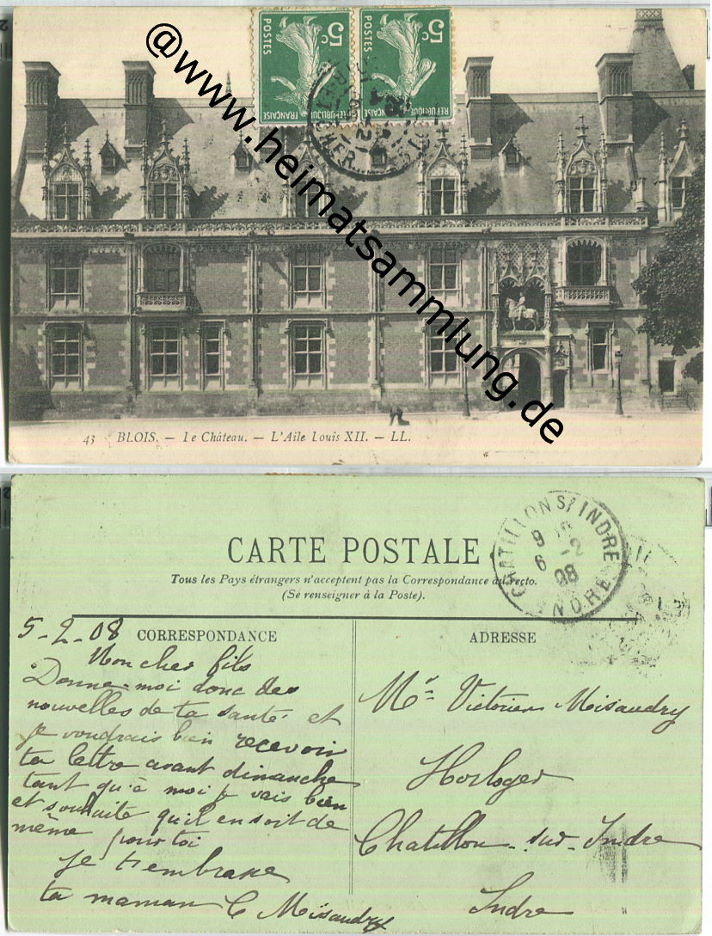 5c 5c
POSTES POSTES
REPUBLIQUE FRANÇAISE REPUBLIQUE FRANÇAISE
CHER
@www.heimatsammlung.de
43 BLOIS. — Le Château. — L'Aile Louis XII. — LL.
CARTE POSTALE
Tous les Pays étrangers n'acceptent pas la Correspondance au recto.
(Se renseigner à la Poste).
CHATILLON S/ INDRE
9
6 -2
08
INDRE
CORRESPONDANCE
ADRESSE
5-2-08
Mon cher fils
Donne-moi donc des
nouvelles de ta santé et
je voudrais bien recevoir
ta lettre avant dimanche
tant qu'à moi je vais bien
et souhaite qu'il en soit de
même pour toi
Je t'embrasse
ta maman C Misaudry
Mr Victorien Misaudry
Horloger
Chatillon-sur-Indre
Indre